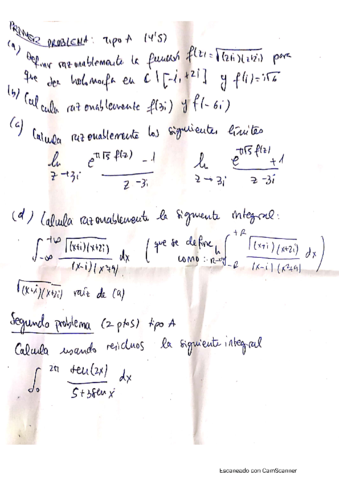 PRIMER PROBLEMA: Tipo A (4'5)
(a) Definir razonablemente la función f(z) = √(z+i)(z+2i) para
que sea holomorfa en ℂ \ [-i, +2i] y f(i) = i√6
(b) Calcula razonablemente f(3i) y f(-6i)
(c) Calcula razonablemente los siguientes límites
lim z→3i (e^{π√5 f(z)} - 1)/(z-3i) lim z→3i (e^{π√5 f(z)} + 1)/(z-3i)
(d) Calcula razonablemente la siguiente integral:
∫_{-∞}^{+∞} √(x+i)(x+2i) / (x-i)(x²+4) dx (que se define como: lim R→∞ ∫_{-R}^{+R} √(x+i)(x+2i) / (x-i)(x²+4) dx)
√(x+i)(x+2i) raíz de (a)
Segundo problema (2 ptos) tipo A
Calcula usando residuos la siguiente integral
∫_0^{2π} sen(2x) / 5+3sen x dx
Escaneado con CamScanner